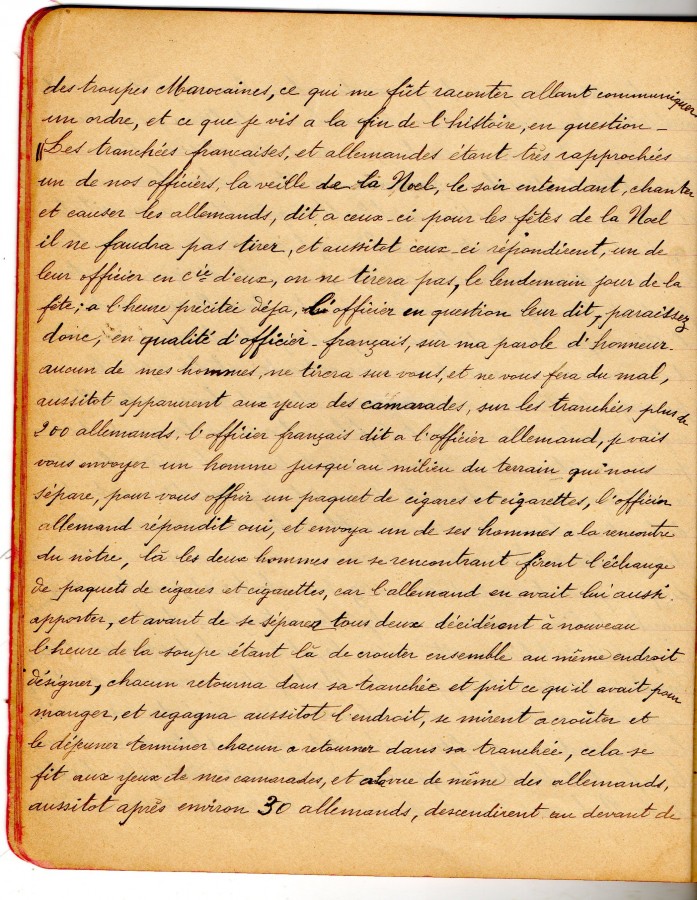 des troupes Marocaines, ce qui me fût raconter allant communiquer
un ordre, et ce que je vis a la fin de l'histoire, en question _
"Les tranchées francaises, et allemandes étant très rapprochées
un de nos officiers, la veille de la Noel, le soir entendant, chanter
et causer les allemands, dit a ceux-ci pour les fêtes de la Noel
il ne faudra pas tirer, et aussitot ceux-ci répondirent, un de
leur officier en cie d'eux, on ne tirera pas, le lendemain jour de la
fête; a l'heure précitée déja, l'officier en question leur dit, paraissez
donc, en qualité d'officier-français, sur ma parole d'honneur-
aucun de mes hommes, ne tirera sur vous, et ne vous fera du mal,
aussitot apparurent aux yeux des camarades, sur les tranchées plus de
200 allemands, l'officier français dit a l'officier allemand, je vais
vous envoyer un homme jusqu'au milieu du terrain qui nous
sépare, pour vous offrir un paquet de cigares et cigarettes, l'officier
allemand répondit oui, et envoya un de ses hommes a la rencontre
du nôtre, là les deux hommes en se rencontrant firent l'échange
de paquets de cigares et cigarettes, car l'allemand en avait lui aussi
apporter, et avant de se séparer tous deux décidèrent à nouveau
l'heure de la soupe étant là de crouter ensemble au même endroit
désigner, chacun retourna dans sa tranchée et prit ce qu'il avait pour
manger, et regagna aussitot l'endroit, se mirent a croûter et
le déjeuner terminer chacun a retourner dans sa tranchée, cela se
fit aux yeux de mes camarades, et a la vue de même des allemands,
aussitot après environ 30 allemands, descendirent au devant de